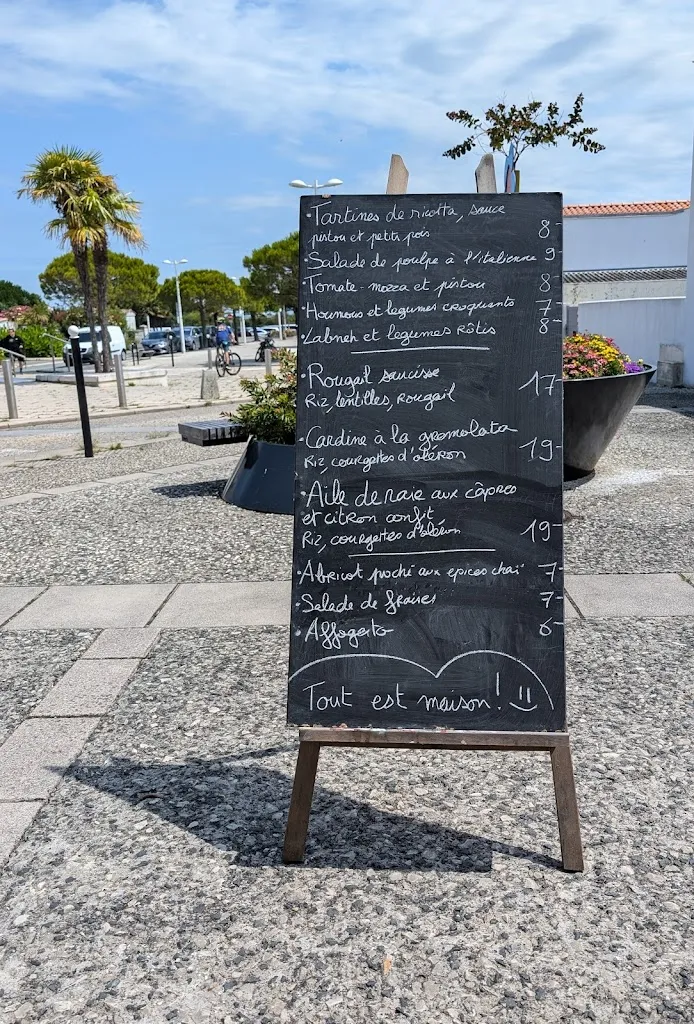 • Tartines de ricotta, sauce
pistou et petits pois 8-
• Salade de poulpe à l'italienne 9
• Tomate-mozza et pistou 8-
• Houmous et legumes croquants 7-
• Labneh et legumes rôtis 8-
• Rougail saucisse
Riz, lentilles, rougail 17-
• Cardine à la gremolata
Riz, courgettes d'oléron 19-
• Aile de raie aux câpres
et citron confit
Riz, courgettes d'oléron 19-
• Abricot poché aux epices chaï 7-
• Salade de fraises 7-
• Affogato 6-
Tout est maison! =)